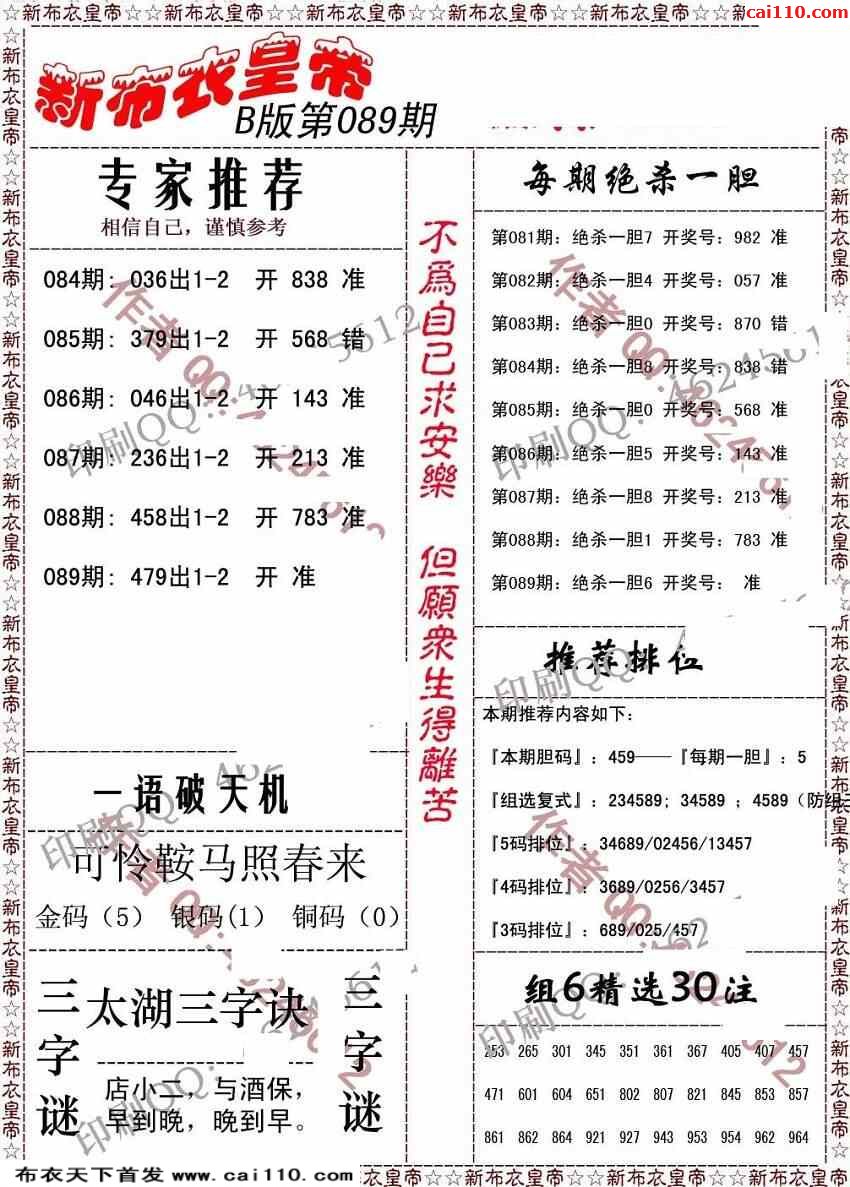 ☆☆新布衣皇帝☆☆新布衣皇帝☆☆新布衣皇帝☆☆新布衣皇帝☆☆新布衣皇帝☆☆新布衣皇帝☆☆
cai110.com
新布衣皇帝
B版第089期
专家推荐
相信自己，谨慎参考
084期: 036出1-2 开 838 准
085期: 379出1-2 开 568 错
086期: 046出1-2 开 143 准
087期: 236出1-2 开 213 准
088期: 458出1-2 开 783 准
089期: 479出1-2 开 准
一语破天机
可怜鞍马照春来
金码（5） 银码(1) 铜码（0）
三字谜
太湖三字诀
店小二，与酒保，
早到晚，晚到早。
三字谜
不為自己求安樂 但願衆生得離苦
每期绝杀一胆
第081期: 绝杀一胆7 开奖号: 982 准
第082期: 绝杀一胆4 开奖号: 057 准
第083期: 绝杀一胆0 开奖号: 870 错
第084期: 绝杀一胆8 开奖号: 838 错
第085期: 绝杀一胆0 开奖号: 568 准
第086期: 绝杀一胆5 开奖号: 143 准
第087期: 绝杀一胆8 开奖号: 213 准
第088期: 绝杀一胆1 开奖号: 783 准
第089期: 绝杀一胆6 开奖号: 准
推荐排位
本期推荐内容如下:
『本期胆码』: 459——『每期一胆』: 5
『组选复式』: 234589; 34589 ; 4589（防组三
『5码排位』: 34689/02456/13457
『4码排位』: 3689/0256/3457
『3码排位』: 689/025/457
组6精选30注
253 265 301 345 351 361 367 405 407 457
471 601 604 651 802 807 821 845 853 857
861 862 864 921 927 943 953 954 962 964
布衣天下首发 www.cai110.com
☆新布衣皇帝☆☆新布衣皇帝☆☆新布衣皇帝☆☆新布衣皇帝☆